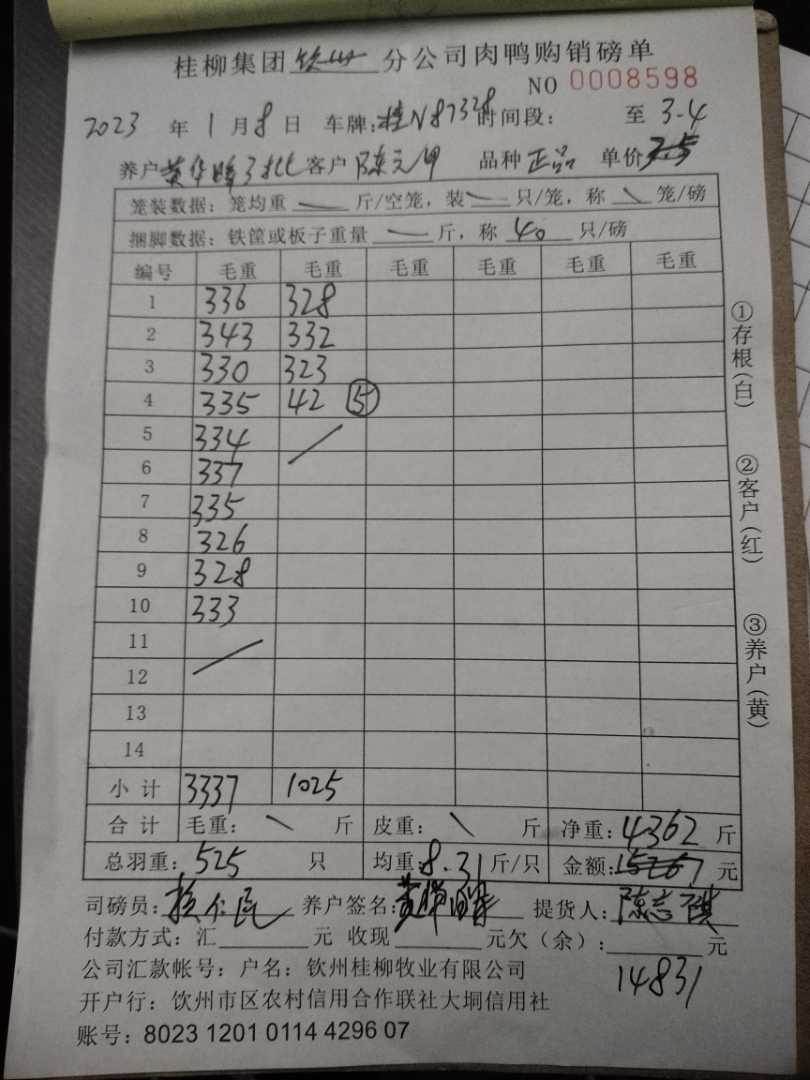 桂柳集团钦州分公司肉鸭购销磅单
NO 0008598
2023 年 1 月 8 日 车牌:桂N87328 时间段: 至 3-4
养户 黄华晴3批 客户 陈元甲 品种 正品 单价 3.5
笼装数据: 笼均重 — 斤/空笼, 装 — 只/笼, 称 \ 笼/磅
捆脚数据: 铁筐或板子重量 — 斤, 称 40 只/磅
编号 毛重 毛重 毛重 毛重 毛重 毛重
1 336 328
2 343 332
3 330 323
4 335 42 ⑤
5 334 /
6 337
7 335
8 326
9 328
10 333
11
12
13
14
小 计 3337 1025
合 计 毛重: \ 斤 皮重: \ 斤 净重: 4362 斤
总羽重: 525 只 均重: 8.31 斤/只 金额: 15267 元
司磅员: 养户签名: 提货人: 陈志
付款方式: 汇 元 收现 元欠(余): 元
14831
公司汇款帐号: 户名: 钦州桂柳牧业有限公司
开户行: 钦州市区农村信用合作联社大垌信用社
账号: 8023 1201 0114 4296 07
①存根(白)
②客户(红)
③养户(黄)